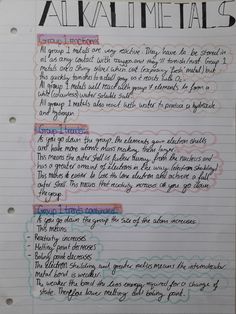 ALKALI METALS
Group 1 reactions
All group 1 metals are very reactive. They have to be stored in
oil as any contact with oxygen and they'll tarnish/react. Group 1
metals are shiny when cut (exposing fresh metal) but
this quickly tarnishes to a dull grey as it reacts with O₂.
All group 1 metals will react with group 7 elements to form a
white (colourless) water soluble salt.
All group 1 metals also react with water to produce a hydroxide
and hydrogen.
Group 1 trends
As you go down the group, the elements gain electron shells
and have more atomic mass making them larger.
This means the outer shell is further away from the nucleus and
has a greater amount of electrons in the way (electron shielding)
This makes it easier to lose the lone electron and achieve a full
outer shell. This means that reactivity increases as you go down
the group.
Group 1 trends continued
As you go down the group the size of the atom increases.
This means
- Reactivity increases
- Melting point decreases
- Boiling point decreases
The electron shielding and greater radius means the intermolecular
metal bond is weaker.
The weaker the bond the less energy required for a change of
state. Therefore lower melting and boiling point.